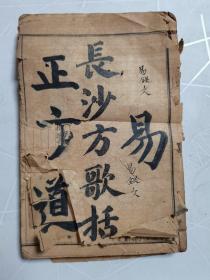 易
易鋖文
易鋖文
長沙方歌括
正方道